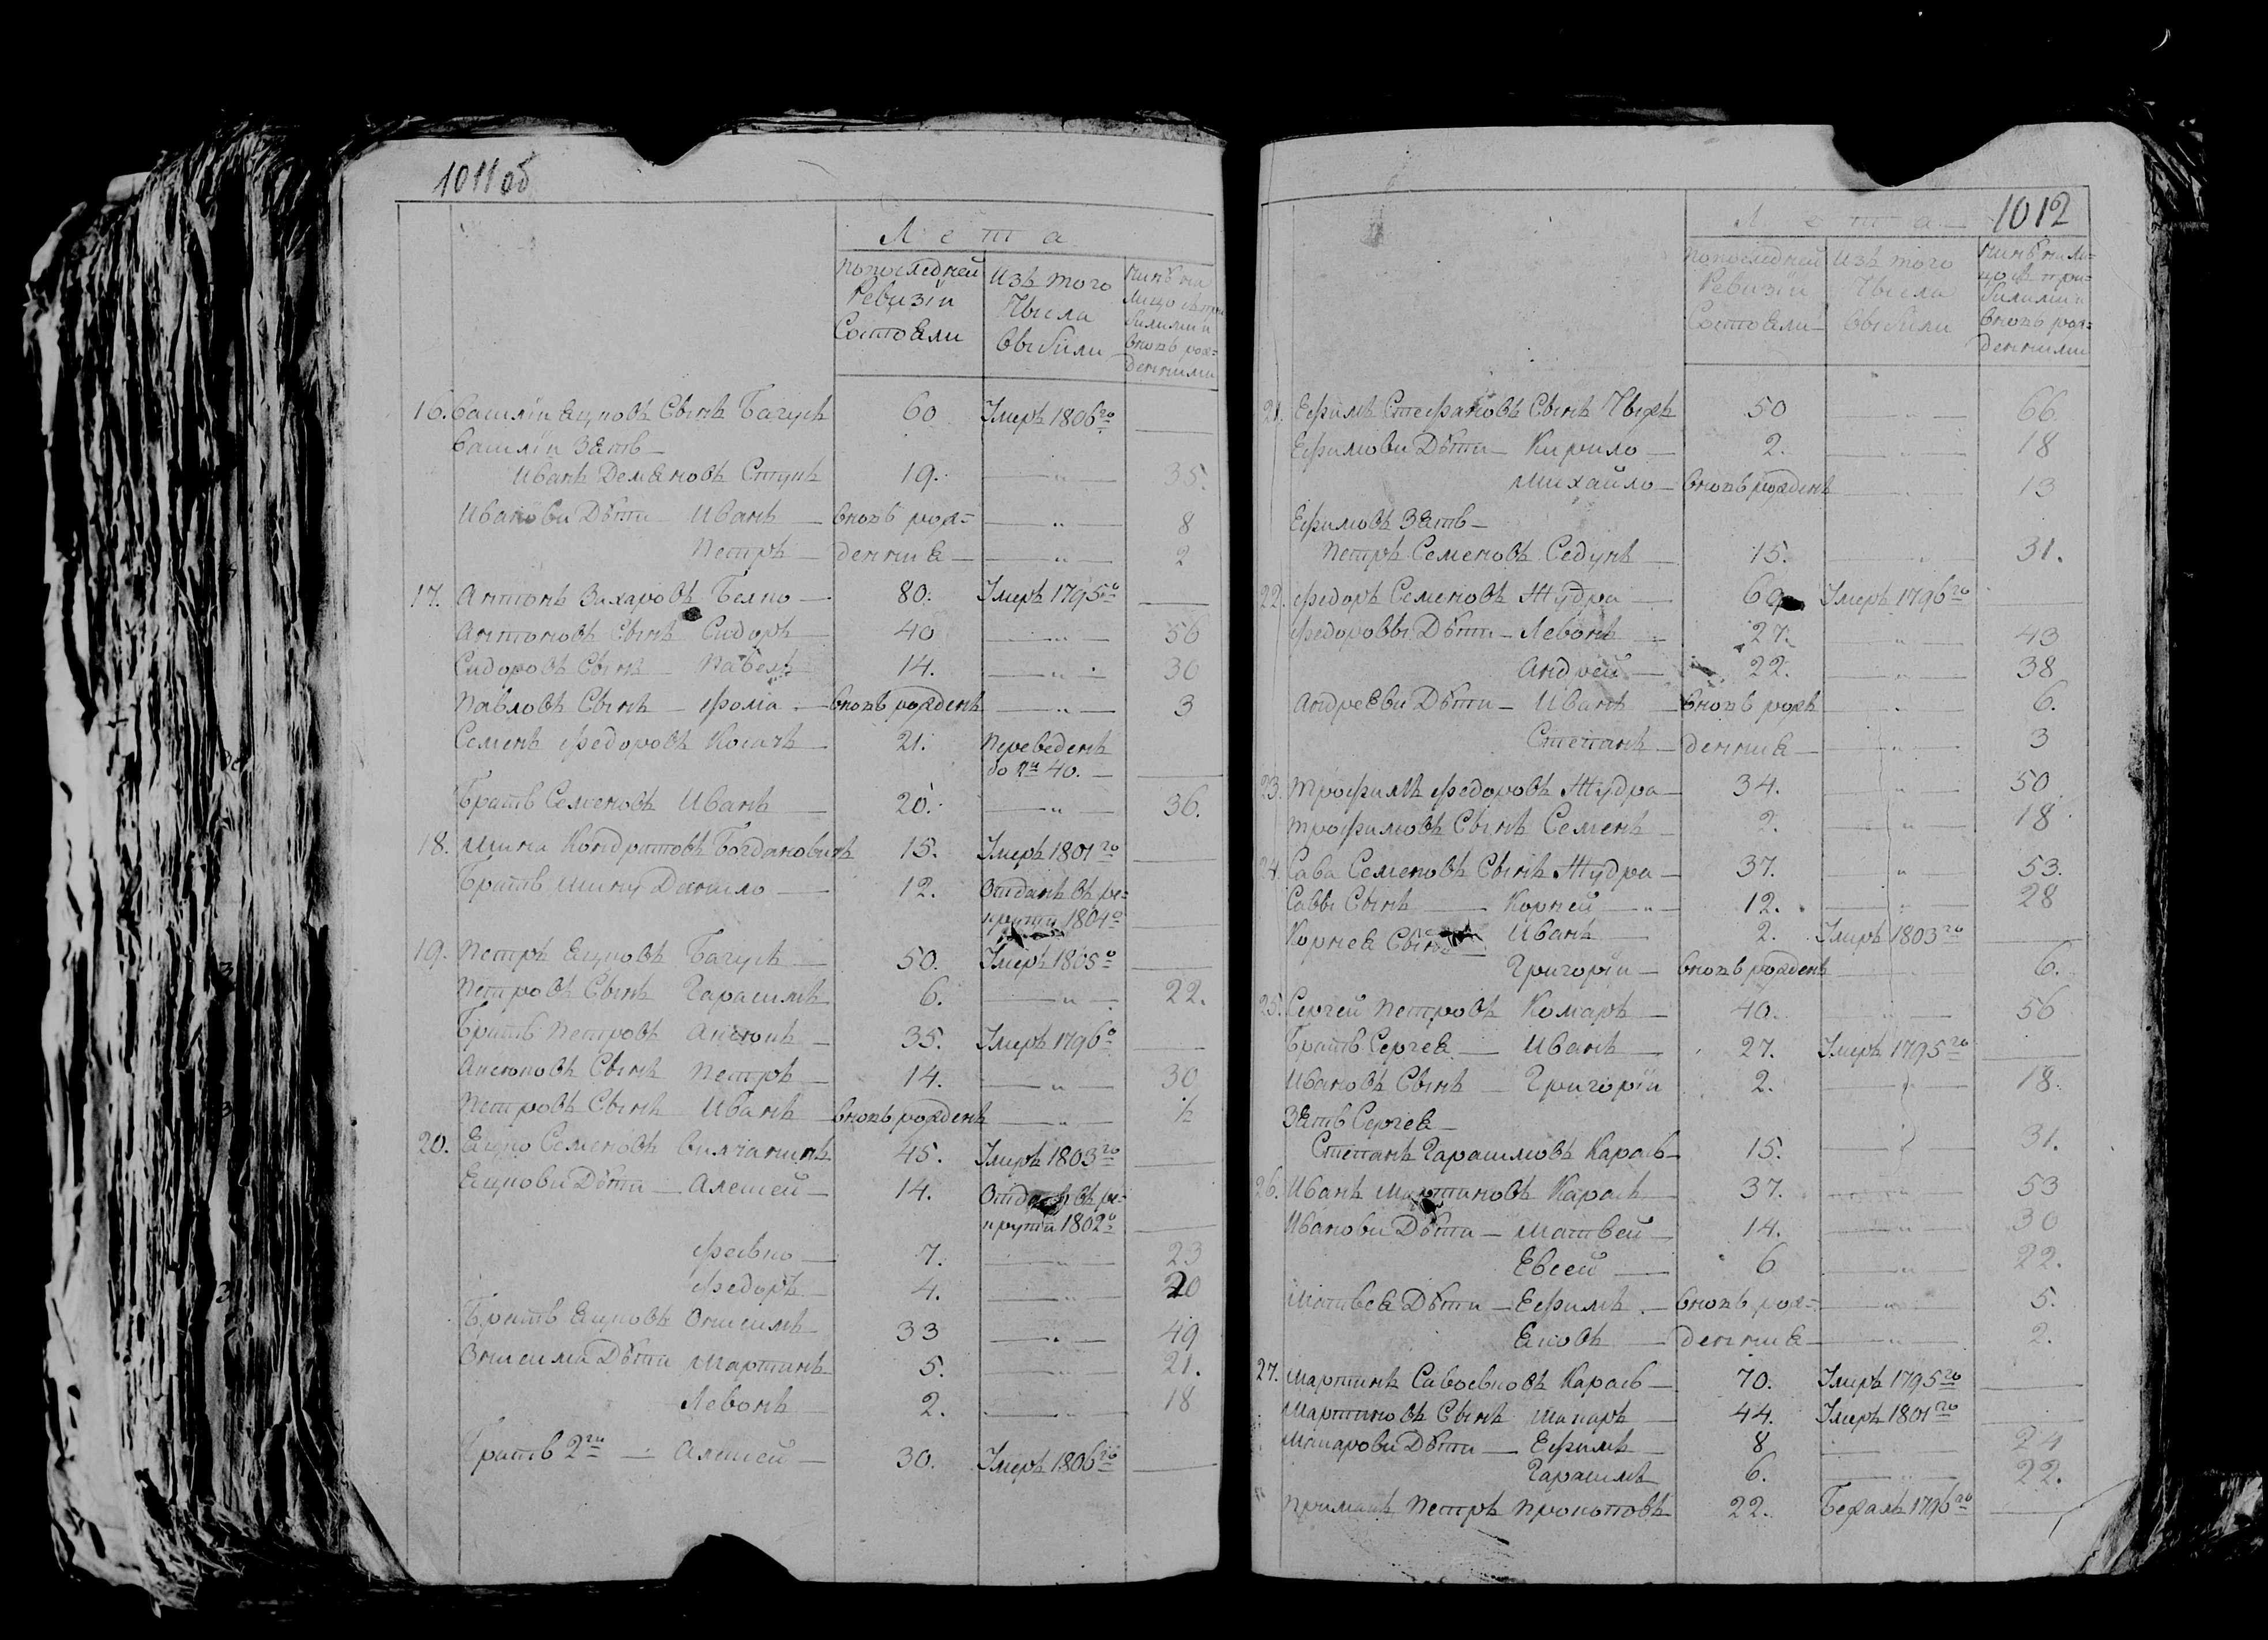 1011об
Лета
попоследней Ревизіи Состояли
Изъ того Числа Выбыли
Ныне на лицо съ при былыми и вновь рож= денными
16. Василій Яцковъ Сынъ Бачусъ 60 Умеръ 1806го
Василія Зять
Иванъ Демяновъ Ступъ 19. 35.
Иванови Дѣти Иванъ вновь рож= 8
Петръ деннія 2
17. Антонъ Захаровъ Белко 80. Умеръ 1795го
Антоновъ Сынъ Сидоръ 40 56
Сидоровъ Сынъ Павелъ 14. 30
Павловъ Сынъ Фома вновь рожденъ 3
Семенъ Федоровъ Косачъ 21. Переведенъ
во №й 40.
Братъ Семеновъ Иванъ 20. 36.
18. Мина Кондратовъ Богдановичъ 15. Умеръ 1801го
Братъ Мины Данило 12. Отданъ въ ре=
круты 1804го
19. Петръ Яцковъ Бачусъ 50. Умеръ 1805го
Петровъ Сынъ Гарасимъ 6. 22.
Братъ Петровъ 35. Умеръ 1796го
Сынъ Петръ 14. 30
Петровъ Сынъ Иванъ вновь рожденъ ½
20. Яцко Семеновъ Вилчанинъ 45. Умеръ 1803го
Яцкови Дѣти Алексей 14. Отданъ въ ре=
круты 1802го
Февко 7. 23
Федоръ 4. 20
Братъ Яцковъ Онисимъ 33 49
Онисима Дѣти Мартинъ 5. 21.
Левонъ 2. 18
Братъ 2й Алексей 30. Умеръ 1806го
1012
Лета
попоследней Ревизіи Состояли
Изъ того Числа Выбыли
Ныне на ли= цо съ при= былыми и вновь рож= денными
21. Ефимъ Стефановъ Сынъ Чыжъ 50 66
Ефимови Дѣти Кирило 2. 18
Михайло вновь рожденъ 13
Ефимовъ Зять
Петръ Семеновъ Седунъ 15. 31.
22. Федоръ Семеновъ Жудра 60 Умеръ 1796го
Федоровы Дѣти Левонъ 27. 43
Андрей 22. 38
Андреѣви Дѣти Иванъ вновь рожъ 6.
Степанъ деннія 3
23. Трофимъ Федоровъ Жудра 34. 50
Трофимовъ Сынъ Семенъ 2. 18
24. Сава Семеновъ Сынъ Жудра 37. 53.
Саввы Сынъ Корней 12. 28
Корнея Сынъ Иванъ 2. Умеръ 1803го
Григорій вновь рожденъ 6.
25. Сергей Петровъ Комаръ 40. 56
Братъ Сергея Иванъ 27. Умеръ 1795го
Ивановъ Сынъ Григорій 2. 18.
Зять Сергея
Степанъ Гарасимовъ Карась 15. 31.
26. Иванъ Мартиновъ Карась 37. 53
Иванови Дѣти Матвей 14. 30
Евсей 6 22.
Матвея Дѣти Ефимъ вновь рож= 5.
Яковъ деннія 2.
27. Мартинъ Савоськовъ Карась 70. Умеръ 1795го
Мартиновъ Сынъ Макаръ 44. Умеръ 1801го
Макарови Дѣти Ефимъ 8 24
Гарасимъ 6. 22.
Примакъ Петръ Прокоповъ 22. Бежалъ 1796го